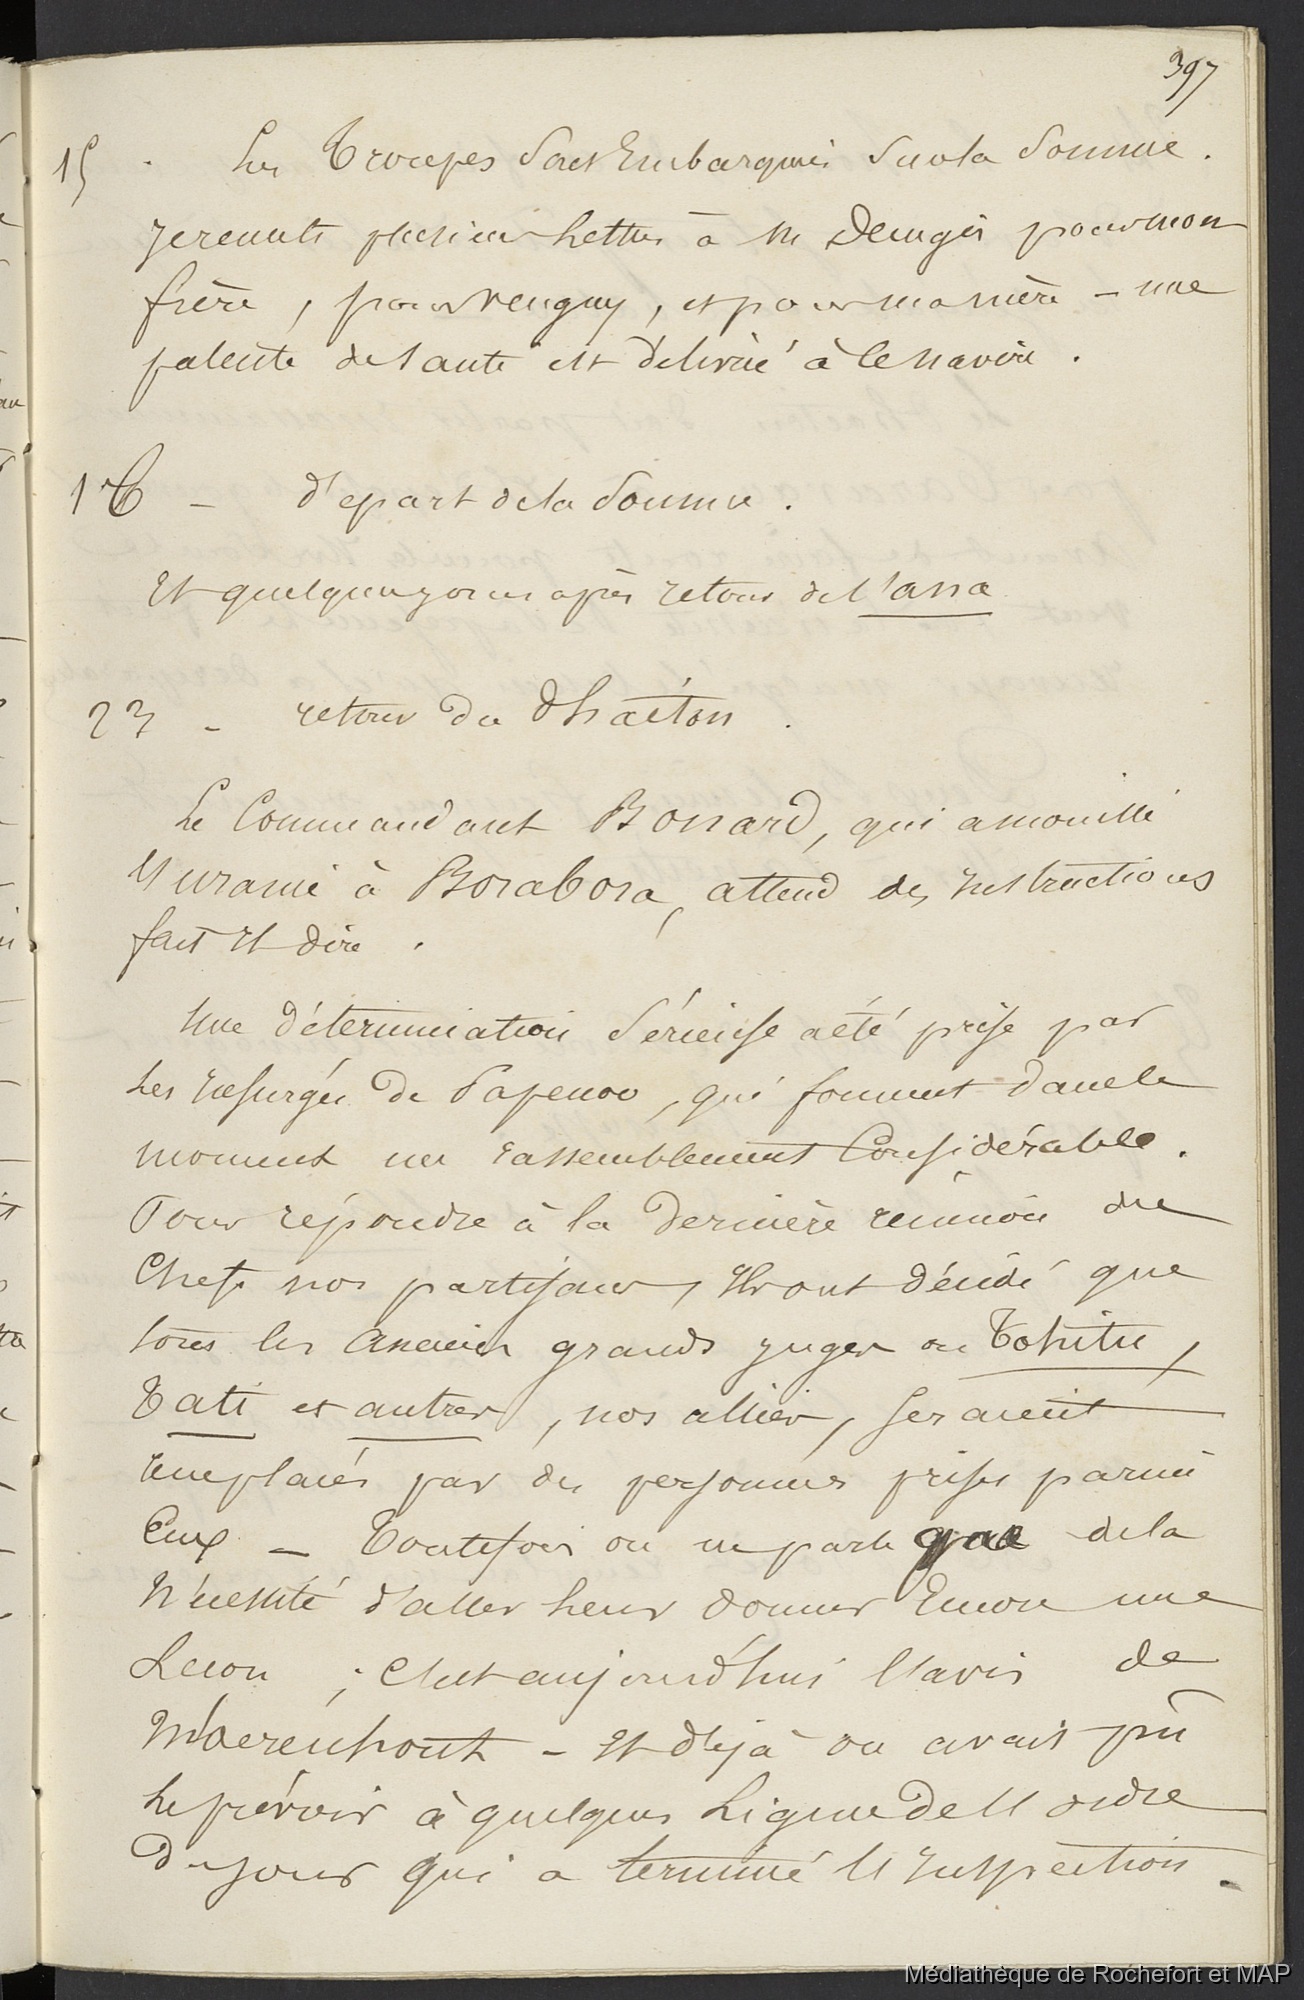 397
15 . Les Troupes sont Embarquées sur la Somme.
je remets plusieurs Lettres à M pour mon
frère, pour et pour ma mère – une
patente de santé est délivré à le navire.
16 – d'epart de la Somme.
Et quelques jours après retour de l'anna
23 – retour du Phaéton.
Le Commandant Bonard, qui a mouillé
l'uranie à Borabora, attend des instructions
fait il dire.
Une détermination sérieuse a été prise par
Les insurgés de Papenoo, qui forment dans le
moment un rassemblement Considérable.
Pour répondre à la dernière réunion des
Chefs nos partisans, Ils ont décidé que
tous les anciens grands juges ou Tohitu,
Tati et autres, nos alliés, seraient
remplacés par des personnes prises parmi
Eux – Toutefois on ne parle que de la
Nécessité d'aller leur donner Encore une
Lecon ; C'est aujourd'hui l'avis de
Moerenhout – Et déjà on avait pû
Le prévoir à quelques Lignes de l'ordre
du jour qui a terminé l'inspection.
Médiathèque de Rochefort et MAP